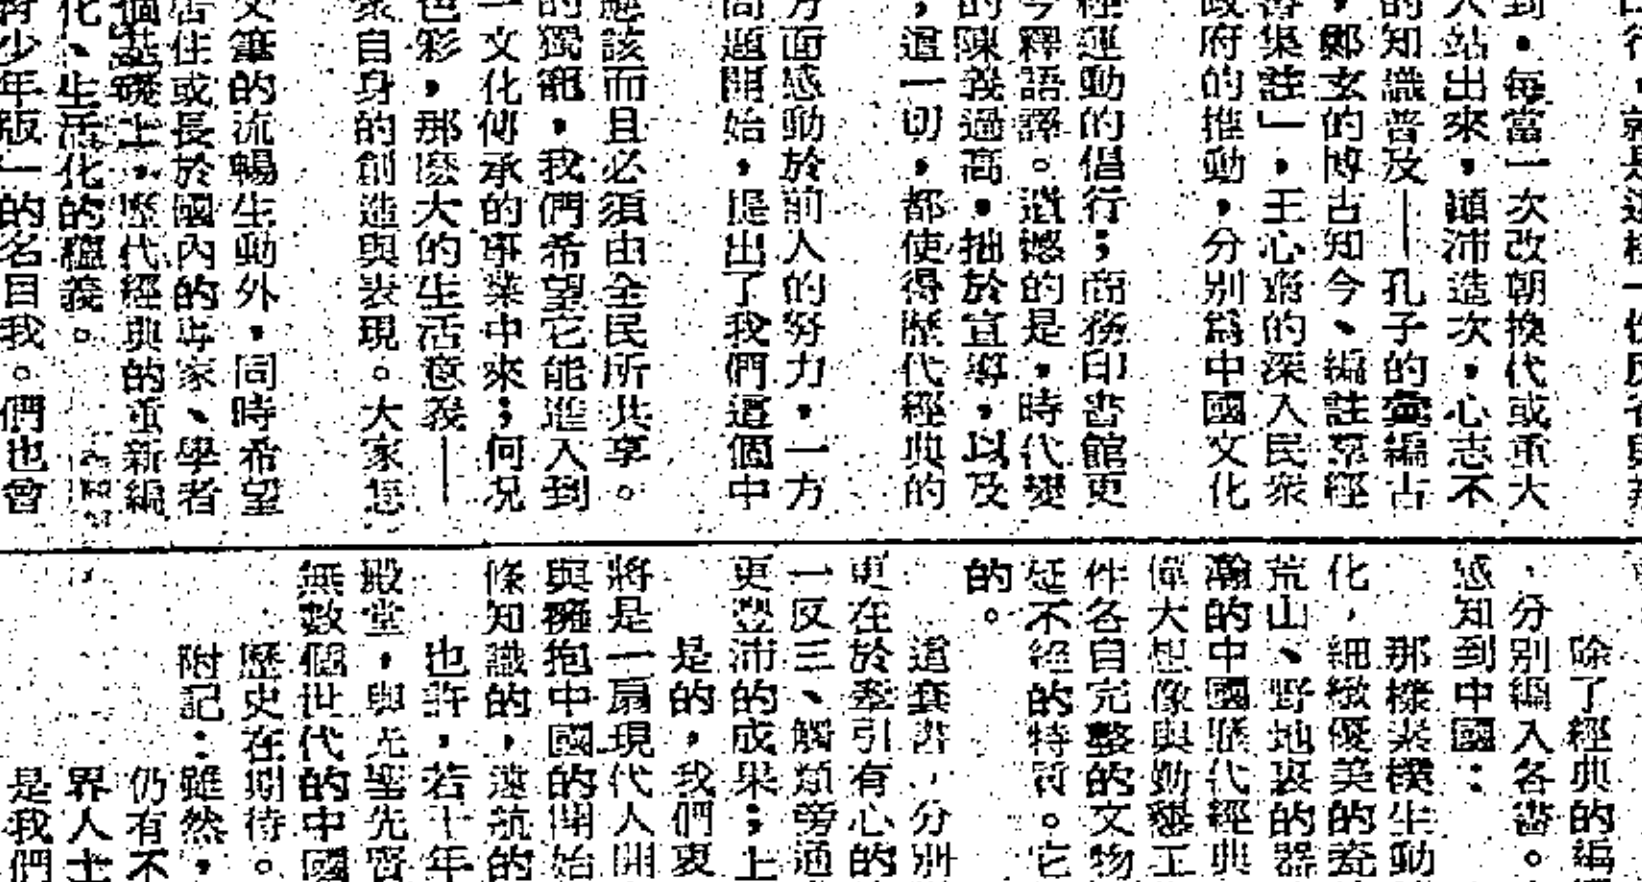 到，每當一次改朝換代或重大
人站出來，顛沛造次，心志不
的知識普及——孔子的彙編古
，鄭玄的博古知今、編註羣經
書集註」，王心齋的深入民衆
政府的推動，分別爲中國文化
經運動的倡行；商務印書館更
今釋語譯。遺憾的是，時代變
的陳義過高，拙於宣導，以及
；這一切，都使得歷代經典的
方面感動於前人的努力，一方
問題開始，提出了我們這個中
應該而且必須由全民所共享。
的獨寵，我們希望它能進入到
一文化傳承的事業中來；何況
色彩，那麽大的生活意義——
家自身的創造與表現。大家怎
文筆的流暢生動外，同時希望
居住或長於國內的專家、學者
個基礎上，歷代經典的重新編
化、生活化的蘊義。
青少年版」的名目我。們也曾
除了經典的編
，分別編入各書。
感知到中國：
那樣素樸生動
化，細緻優美的瓷
荒山、野地裏的器
瀚的中國歷代經典
偉大想像與勤懇工
件各自完整的文物
延不絕的特質。它
的。
這套書，分別
更在於牽引有心的
一反三、觸類旁通
更豐沛的成果；上
是的，我們衷
將是一扇現代人開
與擁抱中國的開始
條知識的，遠航的
也許，若干年
殿堂，與先聖先賢
無數個世代的中國
歷史在期待。
附記：雖然，
仍有不
界人士
是我們